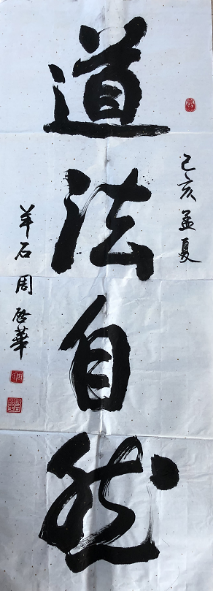 道法自然
己亥孟夏
羊石周启华